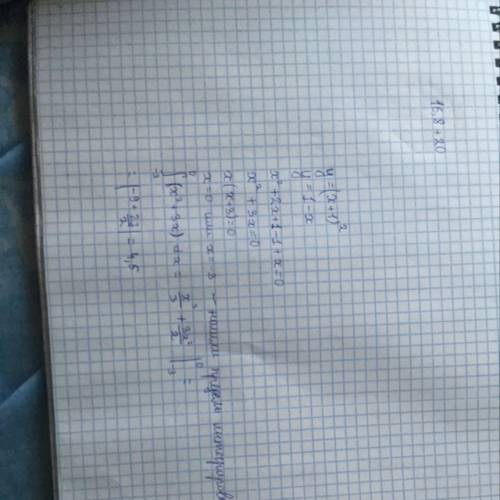 16.8 + 20
y = (x+1)²
y = 1 - x
x² + 2x + 1 - 1 + x = 0
x² + 3x = 0
x(x+3) = 0
x = 0 или x = 3 - наши пределы интегриров
∫₋₃⁰ (x² + 3x) dx = x³/3 + 3x²/2 |₋₃⁰ =
= |-9 + 27/2| = 4,5